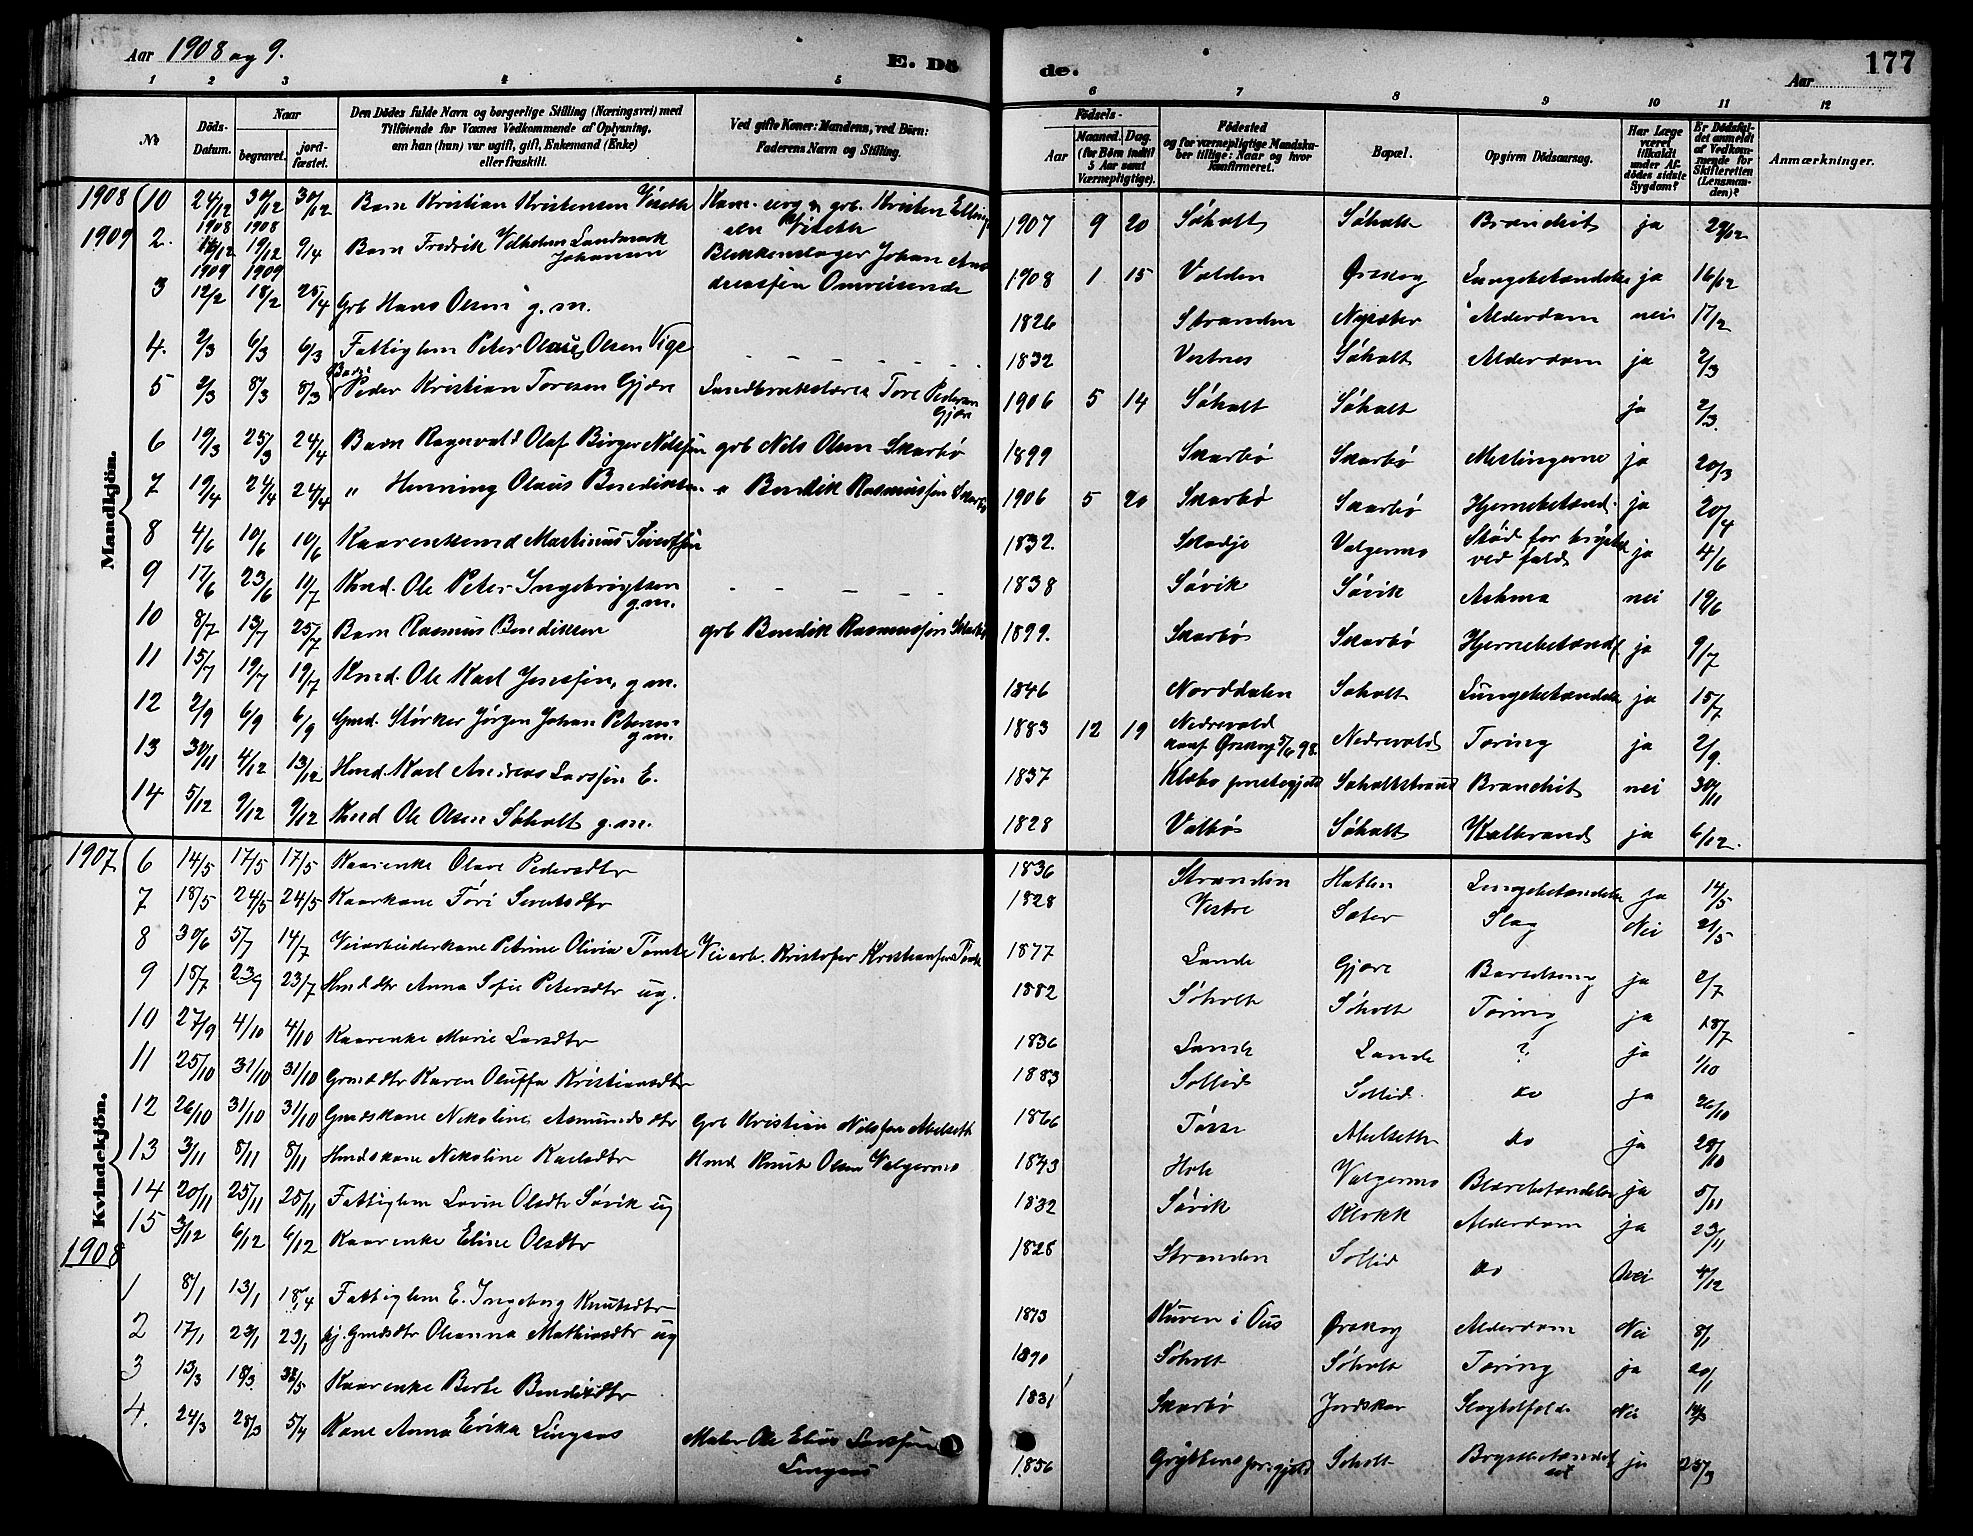 Aar 1908 og 9.
E. Dö
de.
Aar
177
1 2 3 4 5
6 7 8 9 10 11 12
№
Döds-Datum.
Naar
begravet.
jord-fæstet.
Den Dödes fulde Navn og borgerlige Stilling (Næringsvei) med
Tilföiende for Voxnes Vedkommende af Oplysning,
om han (hun) var ugift, gift, Enkemand (Enke)
eller fraskilt.
Ved gifte Koner: Mandens, ved Börn:
Faderens Navn og Stilling.
Födsels-
Aar
Maaned. Dag.
(for Börn indtil
5 Aar samt
Værnepligtige).
Födested
og for værnepligtige Mandska-
ber tillige: Naar og hvor
konfirmeret.
Bopæl.
Opgiven Dödsaarsag.
Har Læge
været
tilkaldt
under Af-
dödes sidste
Sygdom?
Er Dödsfal-
det anmeldt
af Vedkom-
mende for
Skifteretten
(Lensman-
den)?
Anmærkninger.
Mandkjön.
1908 10 24/12 30/12 30/12 Barn Kristian Kristensen Viseth 1907 9 20 Søholt Søholt Bronchit ja 29/12
1909 2. 1908 16/12 1908 19/12 9/4 Barn Fredrik Vilhelm Landmark Johansen Blikkenslager Johan And
dreassen 1908 1 15 Volden Ørskog Lungebetændelse ja 16/12
3 1909 12/2 1909 18/2 25/4 Grb Hans Olsen g.m. 1826 Stranden Nysæter Alderdom nei 17/2
4. 2/3 6/3 6/3 Fattiglem Peter Olaus Olsen Vige 1832 Vestnes Søholt Alderdom ja 2/3
5 2/3 8/3 8/3 Barn Peder Kristian Toresen Gjære Tore Pedersen Gjøre 1906 5 14 Søholt Søholt ja 2/3.
6 19/3 25/3 24/4 Barn Ragnvald Olaf Birger Nilssen grb Nils Olsen Skarbø 1899 Skarbø Skarbø Meslingerne ja 20/3
7 19/4 24/4 24/4 " Henning Olaus Bendiksen " Bendik Rasmussen Skarbø 1906 5 20 Skarbø Skarbø Hjernebetænd. ja 20/4
8 4/6 10/6 10/6 Kaarenkemd Martinus Sivertsen 1832. Skodje Valgermo Stød for brystet
ved fald ja 4/6
9 17/6 23/6 11/7 Kmd. Ole Peter Ingebrigtsen g.m. 1838 Søvik Søvik Asthma nei 19/6
10 8/7 13/7 25/7 Barn Rasmus Bendiksen grb Bendik Rasmussen Skarbø 1899. Skarbø Skarbø Hjernebetænd ja 9/7
11 15/7 19/7 19/7 Kmd. Ole Karl Jonssen, g.m. 1846 Norddalen Søholt Lungebetændelse ja 15/7
12 2/9 6/9 6/9 Gmd. Størker Jørgen Johan Petersen g.m. 1883 12 19 Nedrevold
konf Ørskog 5/6 98. Nedrevold Tæring ja 2/9.
13 30/11 4/12 13/12 Hmd. Karl Andreas Larssen E. 1837 Klæbo prestegjeld Søholtstrand Bronchit nei 30/11
14 5/12 9/12 9/12 Kmd Ole Olsen Søholt g.m. 1828 Valbø Søholt Koldbrand ja 6/12.
Kvindekjön.
1907 6 14/5 17/5 17/5 Kaarenke Olave Pedersdtr 1836 Stranden Hatlen Lungebetændelse ja 14/5
7 18/5 24/5 24/5 Kaarkone Tøri Sivertsdtr 1828 Vestre Sæter Slag Nei 21/5
8 30/6 5/7 14/7 Veiarbeiderkone Petrine Olivia Tomte Veiarb. Kristofer Kristiansen Tomte 1877 Lande Gjøre Barselseng ja 2/7
9 15/7 23/7 23/7 Hmddtr Anna Sofie Petersdtr ug. 1882 Søholt Søholt Tæring ja 18/7
10 27/9 4/10 4/10 Kaarenke Marie Larsdtr 1836 Lande Lande ? ja 1/10
11 25/10 31/10 31/10 Gmddtr Karen Oluffa Kristiansdtr 1883 Sollid Sollid. do ja 26/10
12 26/10 31/10 31/10 Gmdskone Nikoline Asmundsdtr Grb Kristian Nilssen Abelseth 1866 Tørre Abelseth do ja 28/10
13 3/11 8/11 8/11 Hmdskone Nikoline Karlsdtr Hmd Knut Olsen Valgermo 1843 Hole Valgermo Blærebetændelse ja 5/11
14 20/11 25/11 25/11 Fattiglem Lovise Olsdtr Søvik ug 1832 Søvik Klokk Alderdom ja 23/11
15 3/12 6/12 6/12 Kaarenke Eline Olsdtr 1828 Stranden Sollid do Nei 4/12
1908
1 8/1 13/1 Fattiglem E. Ingeborg Knutsdtr Ørskog Alderdom Nei 8/1
2 17/1 23/1 23/1 Gmdsdtr Oleanna Mathiasdtr ug 1890 Søholt Søholt Tæring ja 20/1
3 13/3 18/3 Kaarenke Berte Bendiksdtr 1831 Skarbø Jordskar Slagtilfælde Nei
4. 24/3 28/3 5/4 Kone Anna Erika Lingaas Maler Ole Elius Larssen
Lingaas 1856 Gryttens presgjeld Søholt ja 25/3